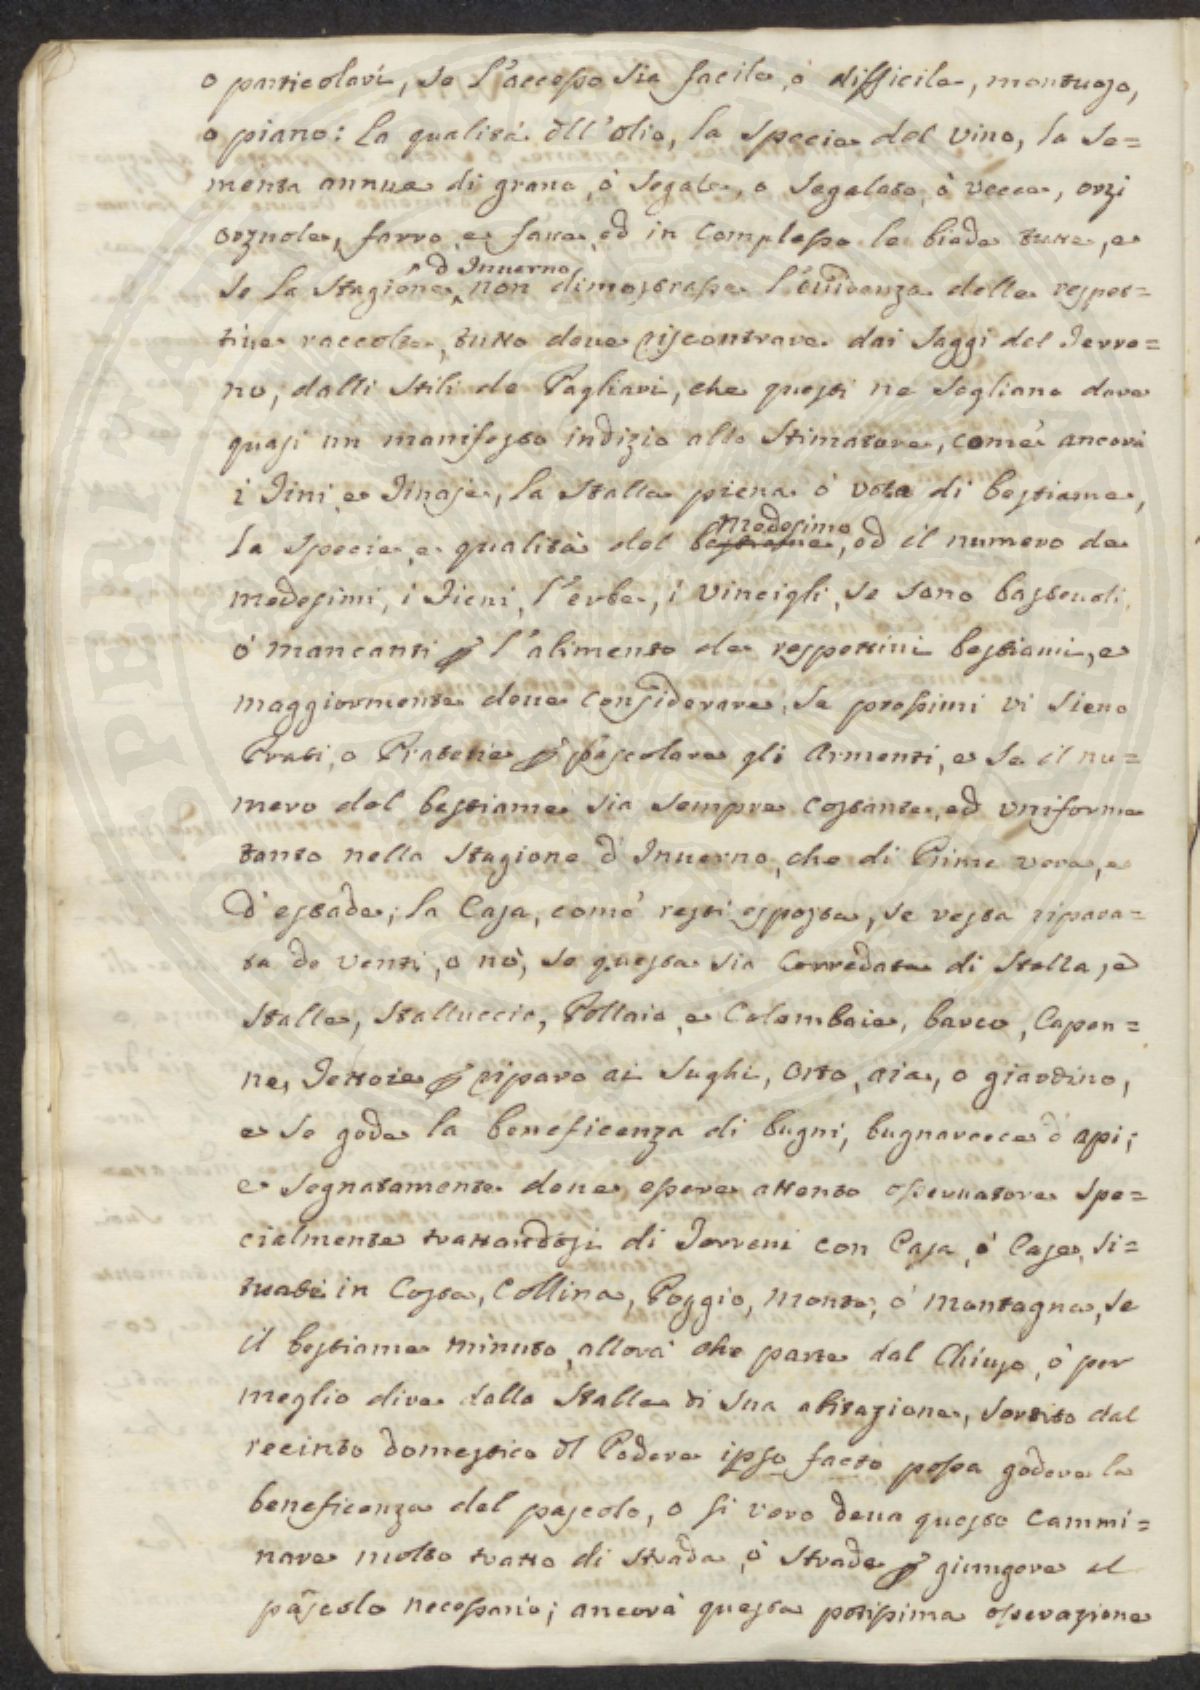 o particolari, se l'accesso sia facile, ò difficile, montuoso,
o piano: la qualità dell'olio, la specie del vino, la se=
menta annua di grano, ò segale, o segalato, ò vecce, orzi
orznole, farro, e faue, ed in complesso le biade tutte, e
se la stagione d'Inuerno non dimostrasse l'euidenza delle respet=
tiue raccolte, tutto deue riscontrare dai saggi del Terre=
no, dalli stili de Pagliari, che questi ne sogliano dare
quasi un manifesto indizio allo stimatore, come ancora
i Tini, e Tinaje, la stalla piena ò vota di bestiame,
la specie, e qualità del bestiame medesimo, ed il numero de
medesimi, i Fieni, l'erbe, i vincigli, se sono basteuoli
ò mancanti p l'alimento de respettiui bestiami, e
maggiormente deue considerare, se prossimi vi sieno
Prati, o Praterie p pascolare gli Armenti, e se il nu=
mero del bestiame sia sempre costante, ed uniforme
tanto nella stagione d'Inuerno, che di Prima vera, e
d'estade; la Casa, come resti esposta, se resta ripara=
ta da venti, o nò, se questa sia corredata di stalla, e
stalle, stalluccio, Pollaio, e Colombaie, barco, Capan=
ne, Tettoie p riparo ai sughi, orto, aia, o giardino,
e se gode la beneficenza di bugni, bugnarecce d'api;
e segnatamente deue essere attento osseruatore spe=
cialmente trattandosi di Terreni con Casa, ò Case, si=
tuati in Costa, Collina, Poggio, Monte, ò montagna, se
il bestiame minuto, allora che parte dal Chiuso, ò per
meglio dire dalla stalla di sua abitazione, sortito dal
recinto domestico dl Podere ipso facto possa godere la
beneficenza del pascolo, o si vero deua questo cammi=
nare molto tratto di strada, ò strade p giungere al
pascolo necessario; ancora questa potissima osservazione